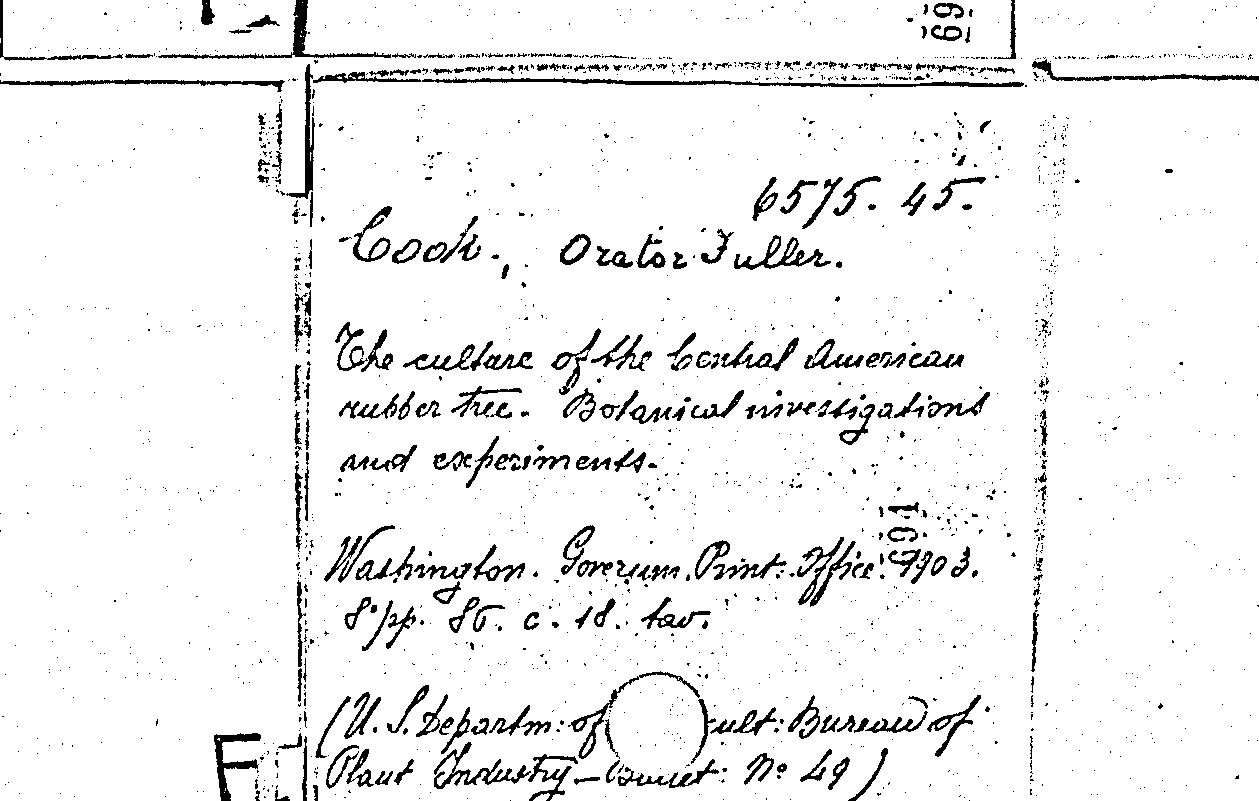 69
6575. 45.
Cook., Orator Fuller.
The culture of the Central American
rubber tree. Botanical investigations
and experiments.
691
Washington. Governm. Print: Office. 1903.
8° pp. 86. c. 18. tav.
(U. S. Departm: of ult: Bureau of
Plant Industry — : No 49)